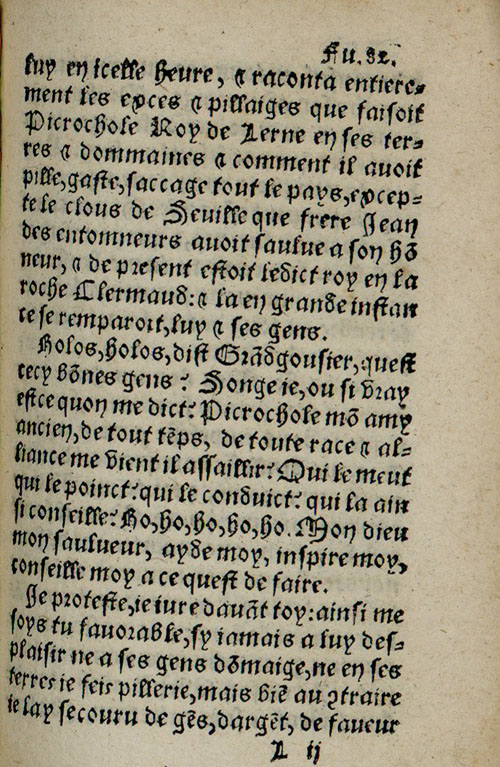 Fu. 82.
luy en icelle heure, ⁊ raconta entiere-
ment les exces ⁊ pillaiges que faisoit
Picrochole Roy de Lerne en ses ter-
res ⁊ dommaines ⁊ comment il auoit
pille, gaste, saccage tout le pays, excep-
te le clous de Seuille que frere Jean
des entomneurs auoit saulue a son hõ
neur, ⁊ de present estoit ledict roy en la
roche Clermaud: ⁊ la en grande instan
ce se remparoit, luy ⁊ ses gens.
Holos, holos, dist Grãdgousier, quest
cecy bõnes gens? Songe ie, ou si vray
est ce quon me dict? Picrochole mõ amy
ancien, de tout tẽps, de toute race ⁊ al-
liance me vient il assaillir? Qui le meut
qui le poinct? qui le conduict? qui la ain
si conseille? Ho, ho, ho, ho, ho. Mon dieu
mon saulueur, ayde moy, inspire moy,
conseille moy a ce quest de faire.
Je proteste, ie iure dauãt toy: ainsi me
soys tu fauorable, sy iamais a luy des-
plaisir ne a ses gens dõmaige, ne en ses
terres ie feis pillerie, mais biẽ au ꝯtraire
ie lay secouru de gẽs, dargẽt, de faueur
L ij